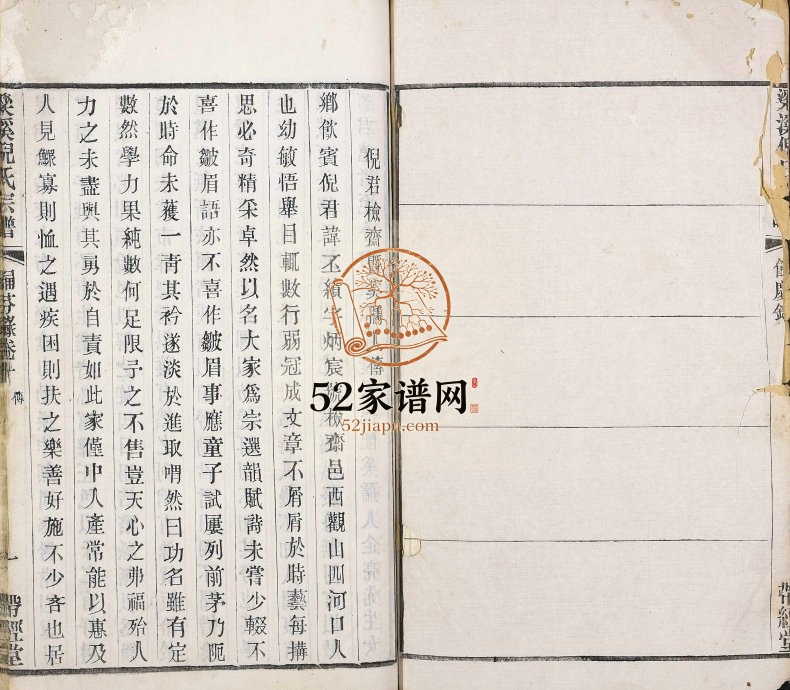 梁溪倪氏
餘慶錄
帶經堂
倪君檢齋
傳
鄉飲賓倪君諱丕績字炳宸號檢齋邑西觀山四河口人
也幼敏悟舉目輒數行弱冠成文章不屑屑於時藝每搆
思必奇精采卓然以名大家為宗選韻賦詩未嘗少輟不
喜作皺眉語亦不喜作皺眉事應童子試屢列前茅乃阨
於時命未獲一青其衿遂淡於進取喟然曰功名雖有定
數然學力果純數何足限予之不售豈天心之弗福殆人
力之未盡與其勇於自責如此家僅中人產常能以惠及
人見鰥寡則恤之遇疾困則扶之樂善好施不少吝也居
梁溪倪氏宗譜
誦芬錄卷十
傳
一
帶經堂
52家谱网
52jiapu.com